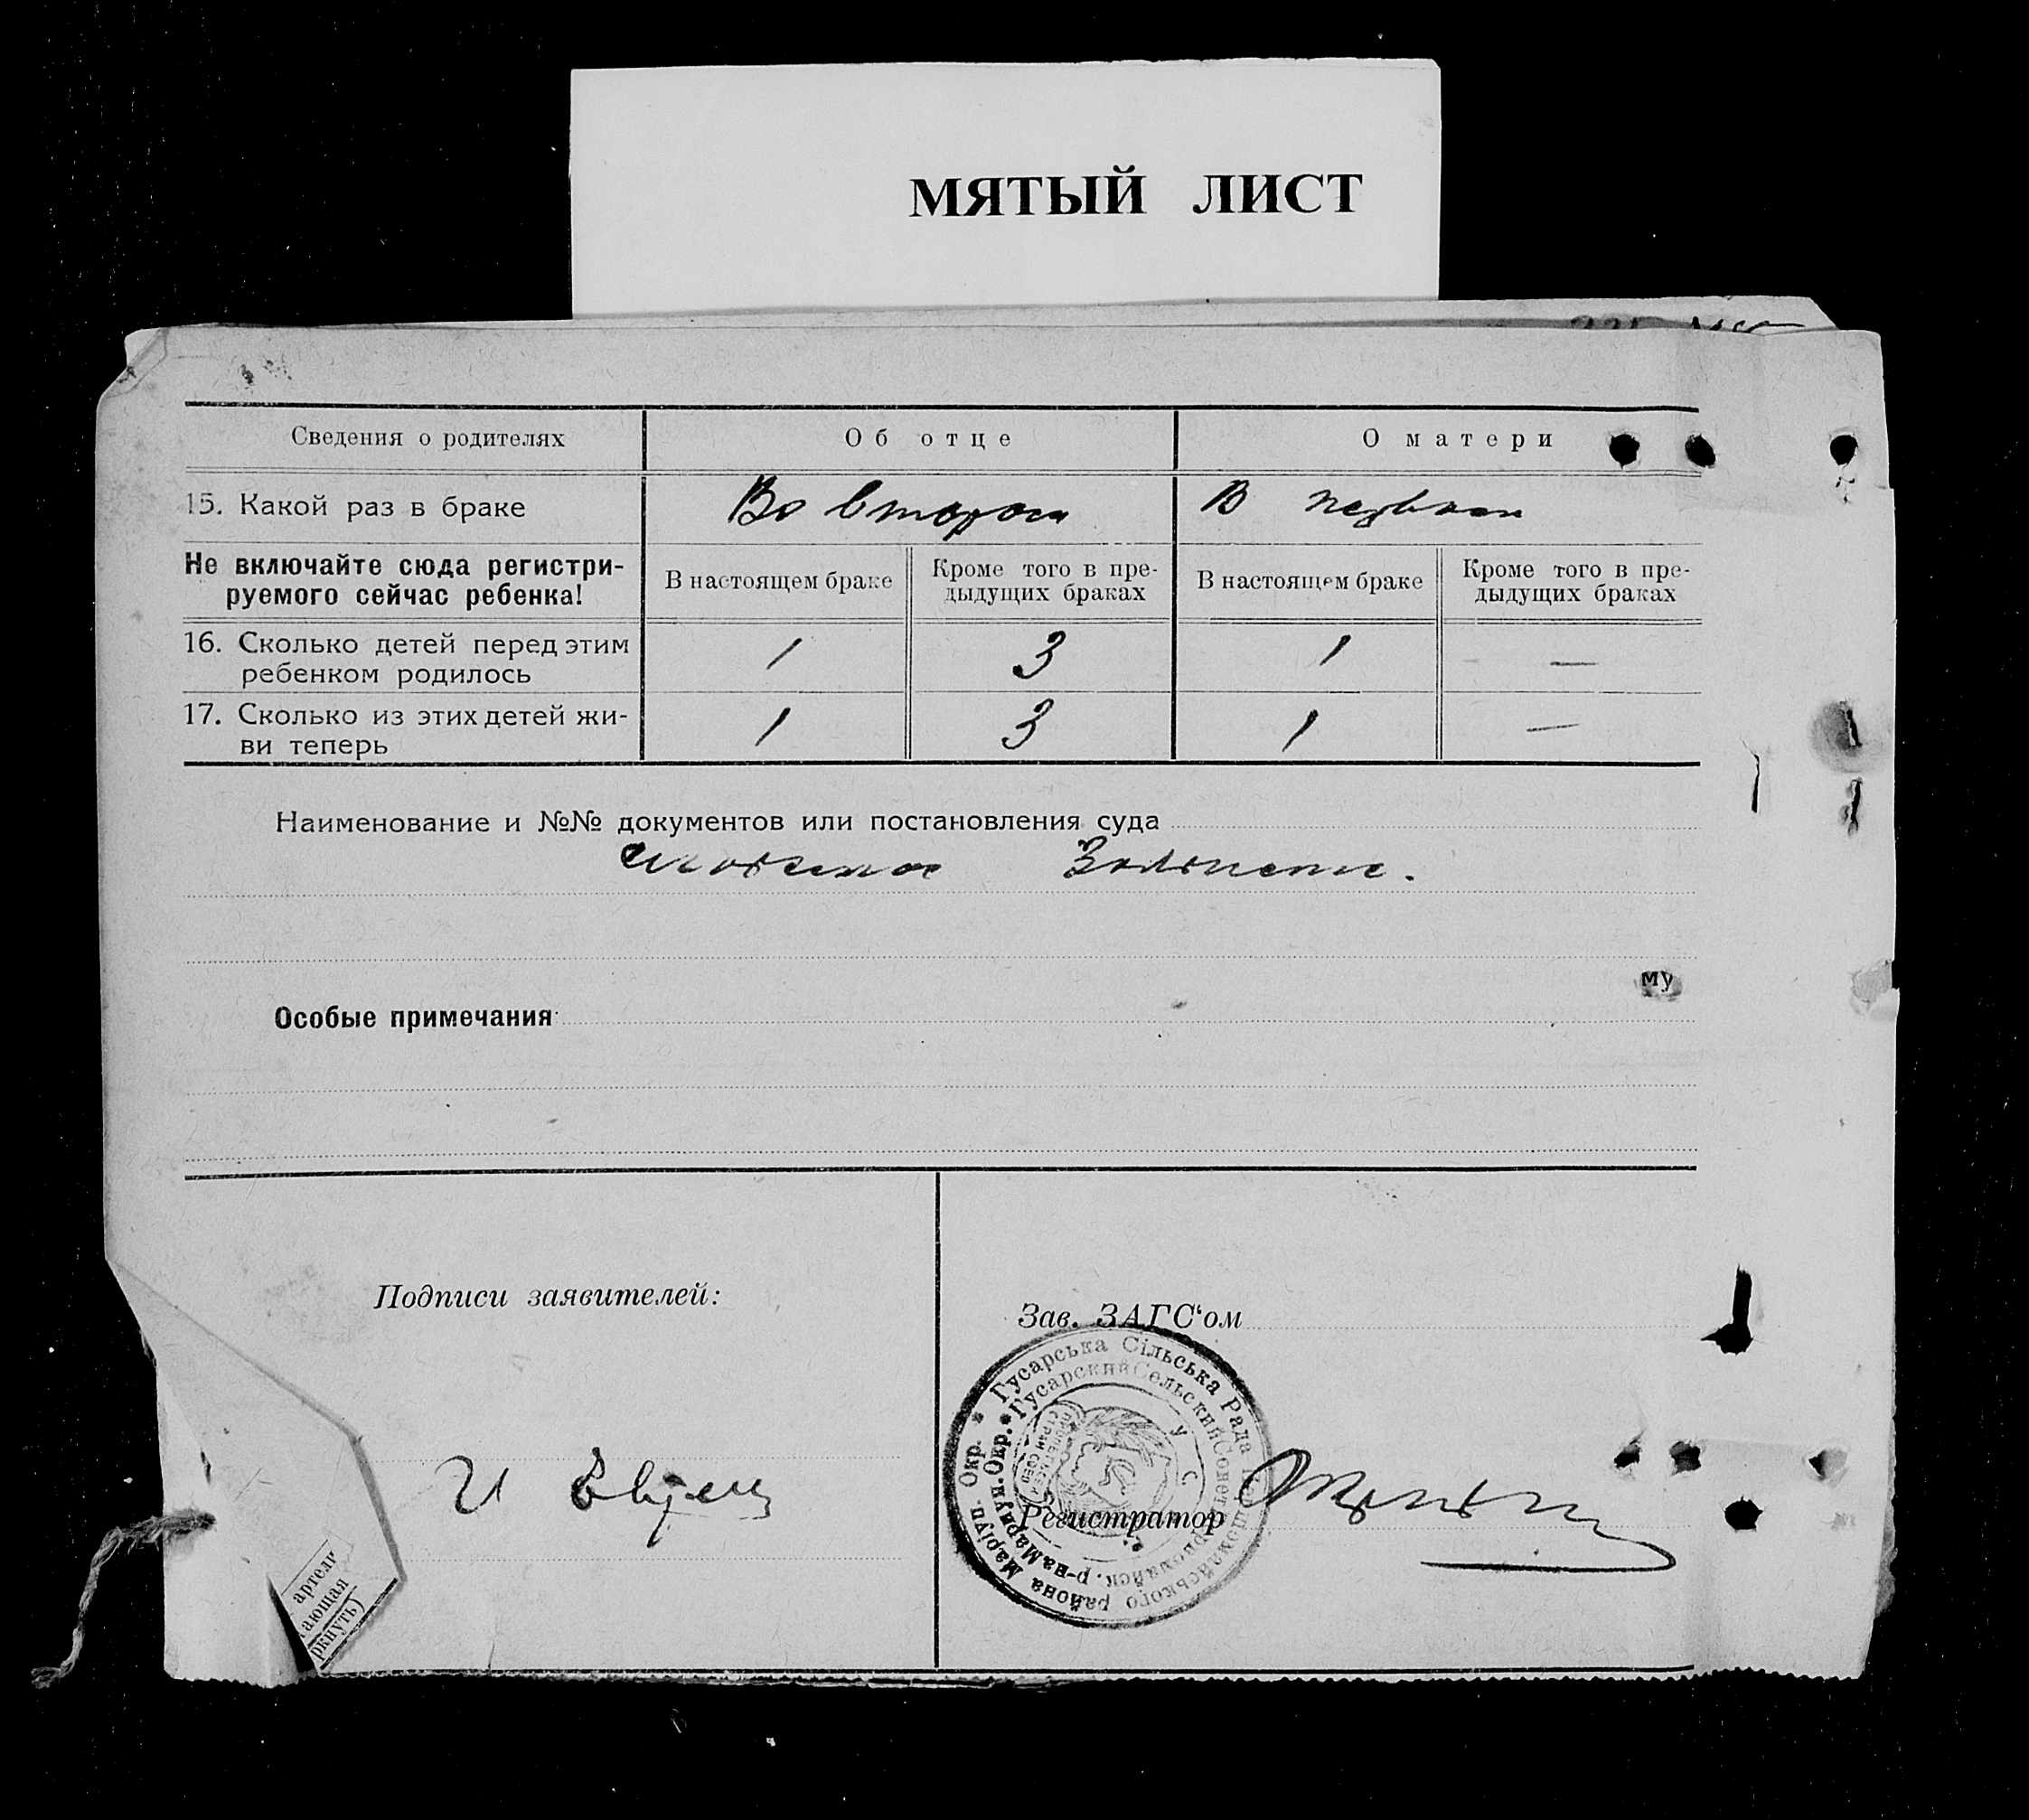 МЯТЫЙ ЛИСТ
Сведения о родителях
Об отце
О матери
15. Какой раз в браке
Во втором
В первом
Не включайте сюда регистри-
руемого сейчас ребенка!
В настоящем браке
Кроме того в пре-
дыдущих браках
В настоящем браке
Кроме того в пре-
дыдущих браках
16. Сколько детей перед этим
ребенком родилось
1 3 1 —
17. Сколько из этих детей жи-
ви теперь
1 3 1 —
Наименование и №№ документов или постановления суда
му
Особые примечания
Подписи заявителей:
Зав. ЗАГС‘ом
Гусарська Сільська Рада
района Маріуп. Окр.
Гусарский Сельский Совет
р-на Мариуп. Окр.
У С
И
Регистратор
артели
ркнуть)